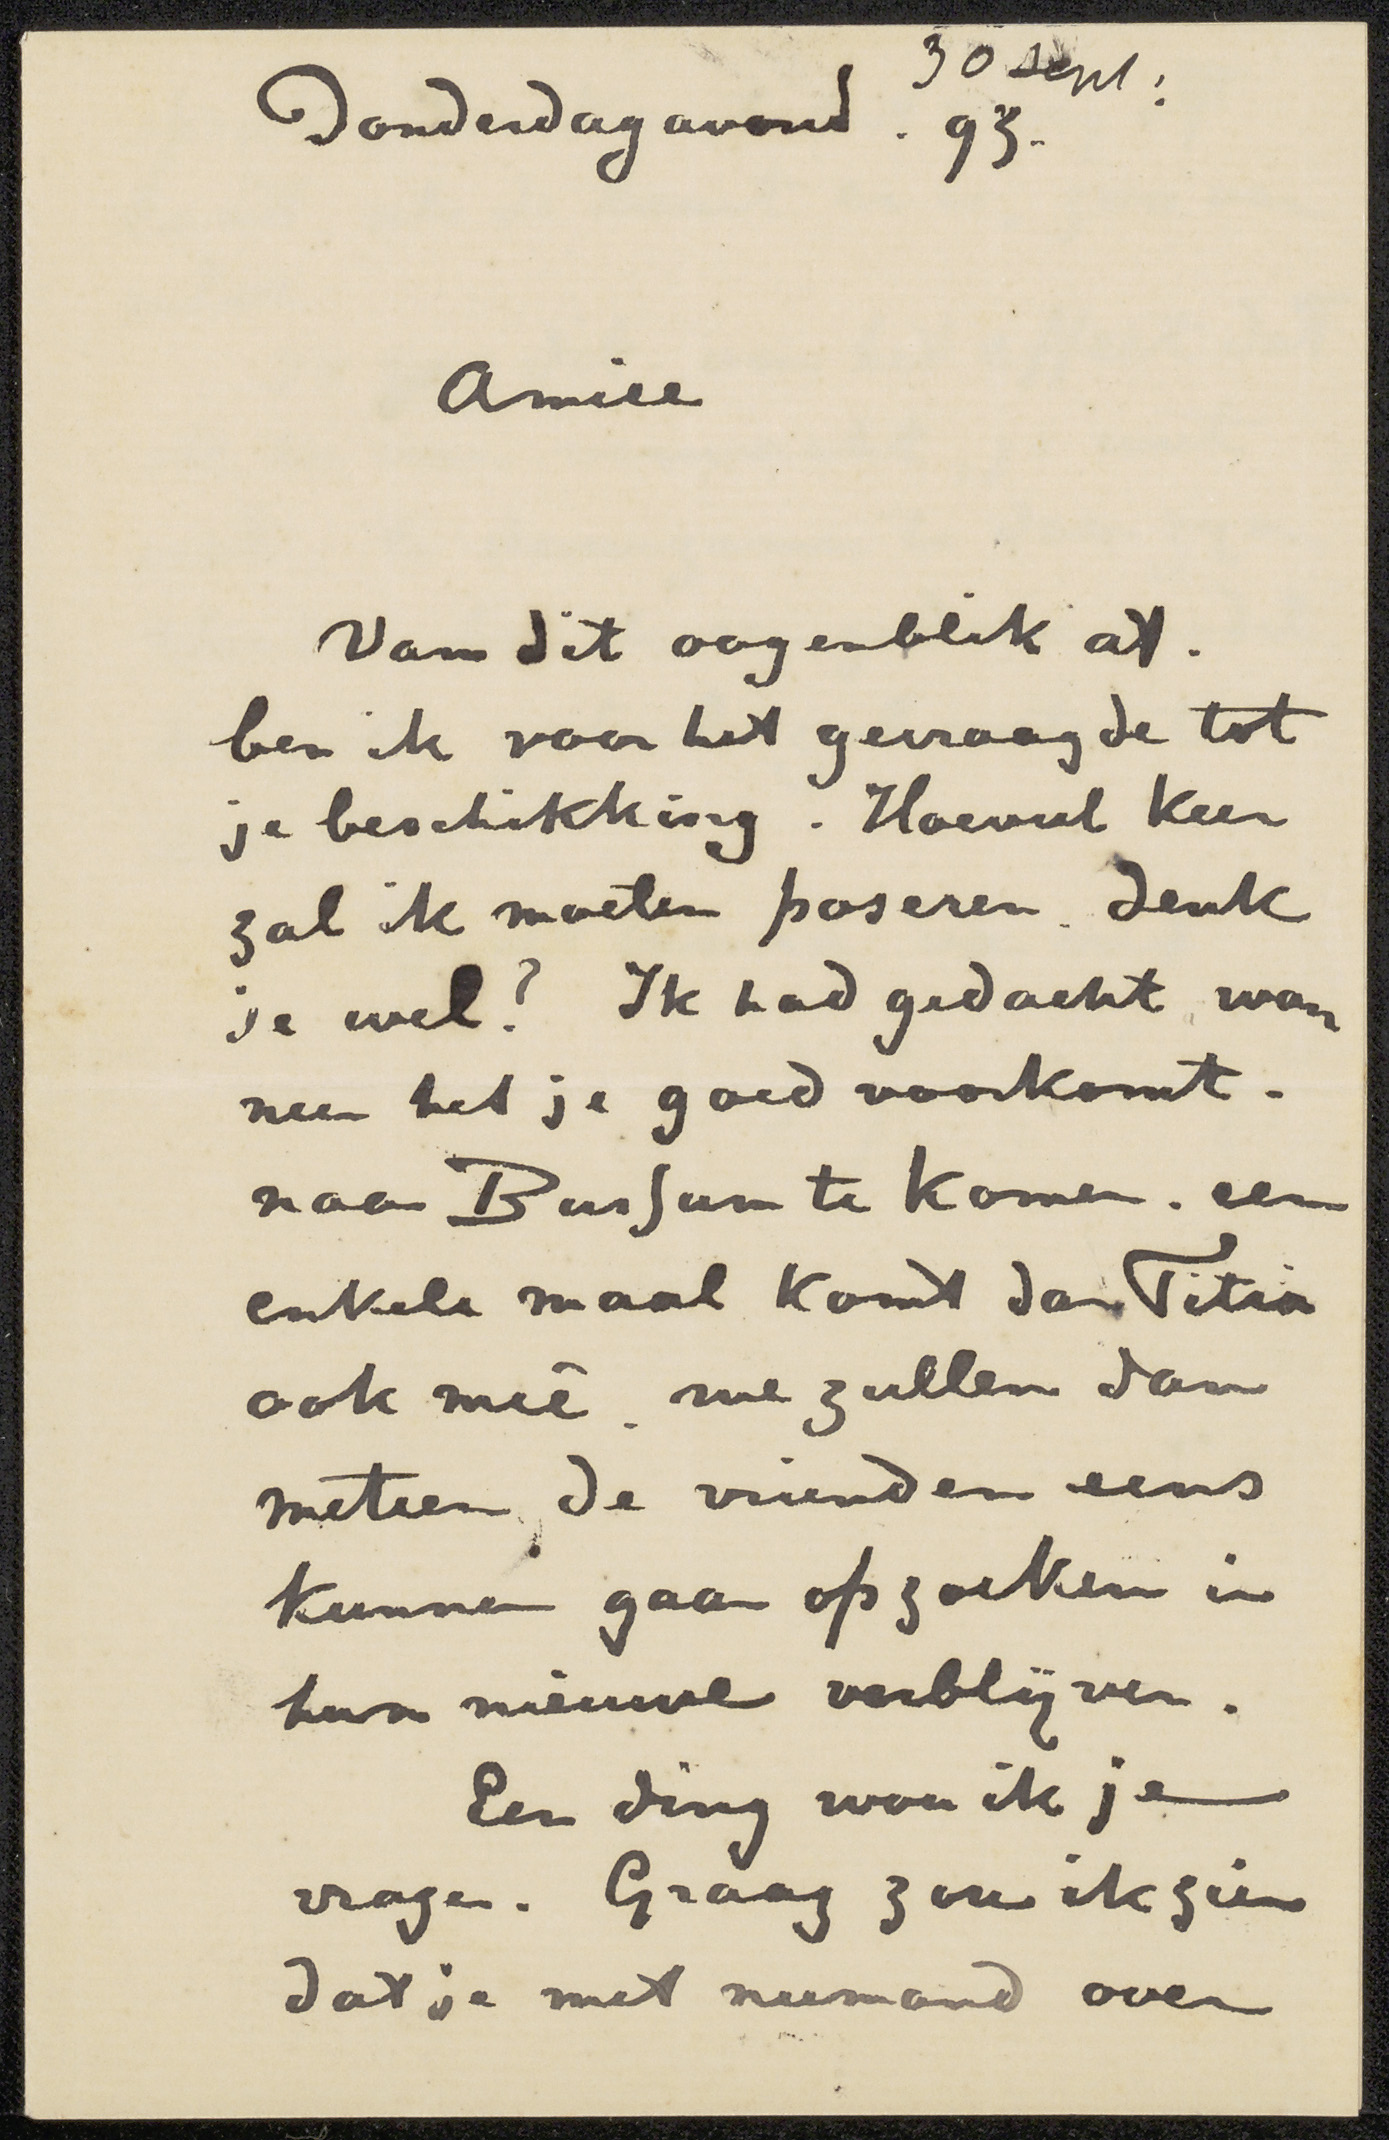 30 Sept:
Donderdagavond. 93.
Amice
Van dit oogenblik af.
ben ik voor het gevraagde tot
je beschikking. Hoeveel keer
zal ik moeten poseren. denk
je wel? Ik had gedacht wan
neer het je goed voorkomt.
naar Bussum te komen. een
enkele maal komt dan Titia
ook meê. we zullen dan
meteen de vrienden eens
kunnen gaan opzoeken in
hun nieuwe verblijven.
Een ding wou ik je
vragen. Graag zou ik zien
dat je met niemand over